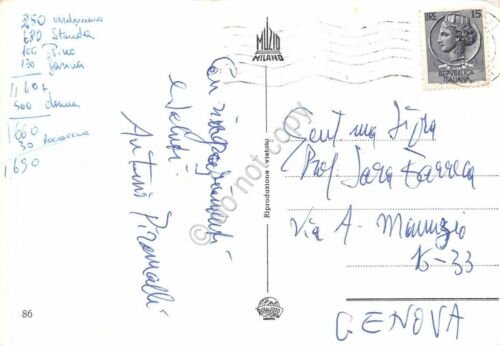 250
680 Standa
100 Pino
130
1160+
500 donna
1660
30
1690
Con ringraziamenti
e saluti
Antonio Piromalli
MUZIO
MILANO
Riproduzione vietata
do not copy
86
LIRE 15
REPVBBLICA
ITALIANA
Gent.ma Sig.ra
Prof. Sara
Via A.
15-33
GENOVA